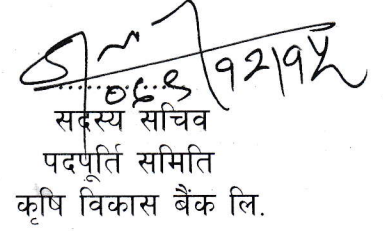 ०६९/१२/१५
सदस्य सचिव
पदपूर्ति समिति
कृषि विकास बैंक लि.